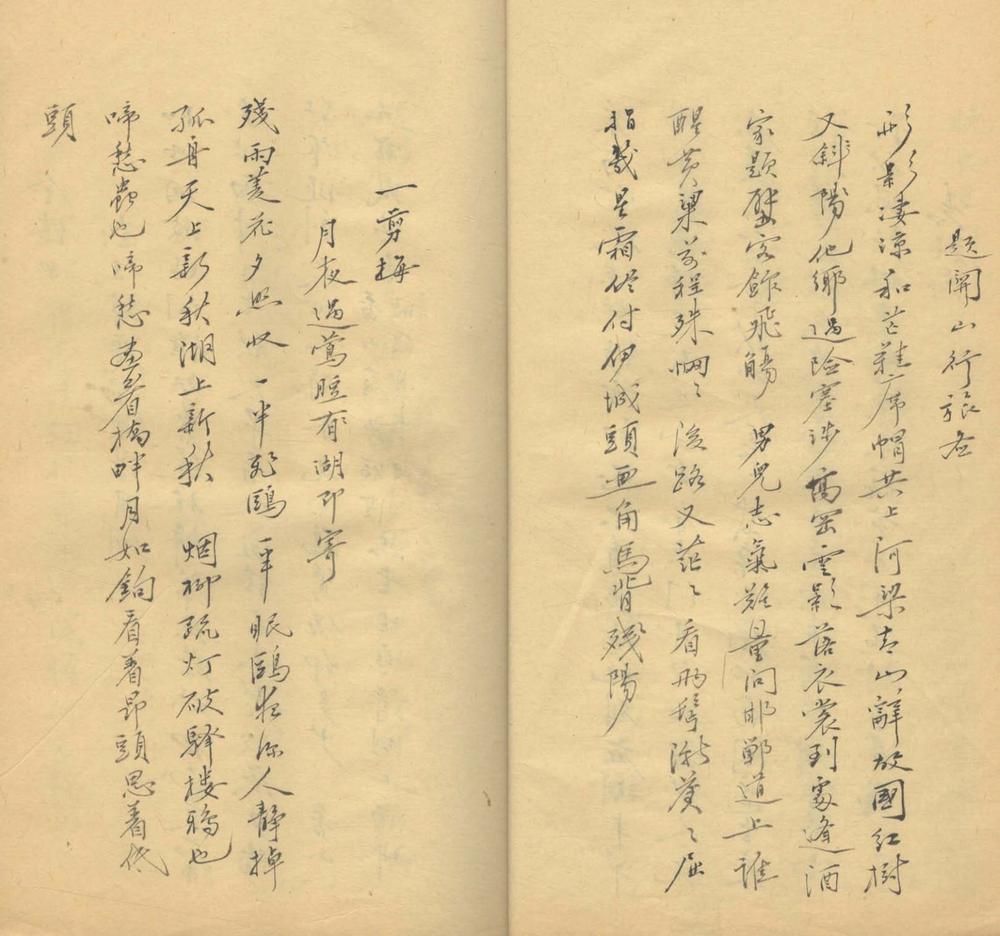 題關山行旅圖
形影凄凉和芒鞵席帽共上河梁青山辭故國紅樹
又斜陽他鄉過險塞涉高岡雲影落衣裳到處逢酒
家題壁客館飛觴 男兒志氣難量問邯鄲道上誰
醒黄粱前程殊惘〻後路又茫〻看兩鬢漸蒼〻屈
指幾星霜修付伊城頭画角馬背殘陽
一剪梅
月夜過鶯脰湖即寄
殘雨菱花夕照收一半飛鷗一半眠鷗夜深人靜掉
孤舟天上新秋湖上新秋 烟柳疏灯破驛楼鴉也
啼愁蟲也啼愁畫看橋畔月如鉤看着昂頭思着低
頭